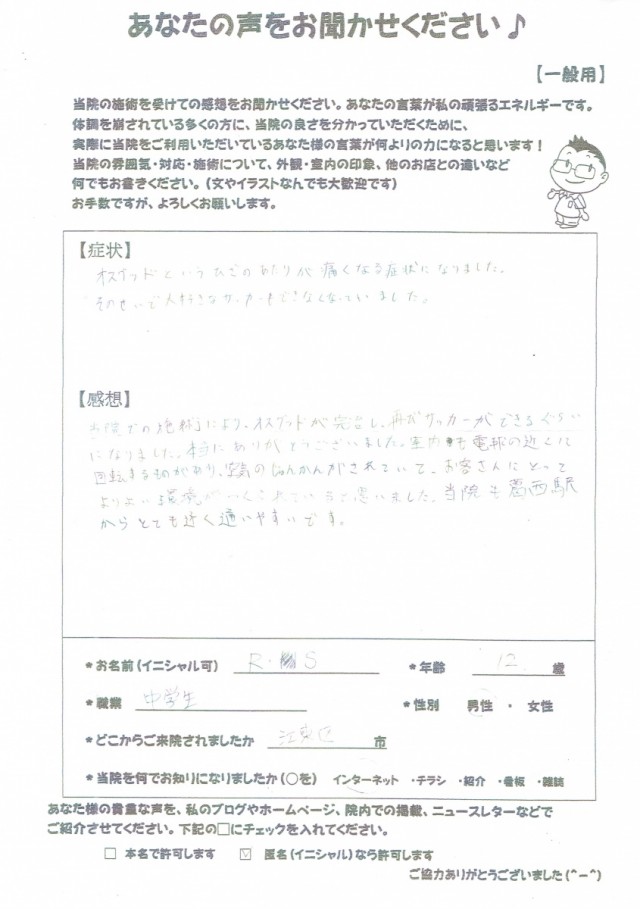 あなたの声をお聞かせください♪
【一般用】
当院の施術を受けての感想をお聞かせください。あなたの言葉が私の頑張るエネルギーです。
体調を崩されている多くの方に、当院の良さを分かっていただくために、
実際に当院をご利用いただいているあなた様の言葉が何よりの力になると思います！
当院の雰囲気・対応・施術について、外観・室内の印象、他のお店との違いなど
何でもお書きください。（文やイラストなんでも大歓迎です）
お手数ですが、よろしくお願いします。
【症状】
オスグッドというひざのあたりが痛くなる症状になりました。
そのせいで大好きなサッカーもできなくなっていました。
【感想】
当院での施術により、オスグッドが完治し、再びサッカーができるぐらい
になりました。本当にありがとうございました。室内も電球の近くに
回転するものがあり、空気のじゅんかんがされていて、お客さんにとって
よりよい環境がつくられていると思いました。当院も葛西駅
からとても近く通いやすいです。
*お名前（イニシャル可） R・S *年齢 12 歳
*職業 中学生 *性別 男性 ・ 女性
*どこからご来院されましたか 江東区 市
*当院を何でお知りになりましたか（○を） インターネット ・チラシ ・紹介 ・看板 ・雑誌
あなた様の貴重な声を、私のブログやホームページ、院内での掲載、ニュースレターなどで
ご紹介させてください。下記の□にチェックを入れてください。
□ 本名で許可します ☑ 匿名（イニシャル）なら許可します
ご協力ありがとうございました(^-^)